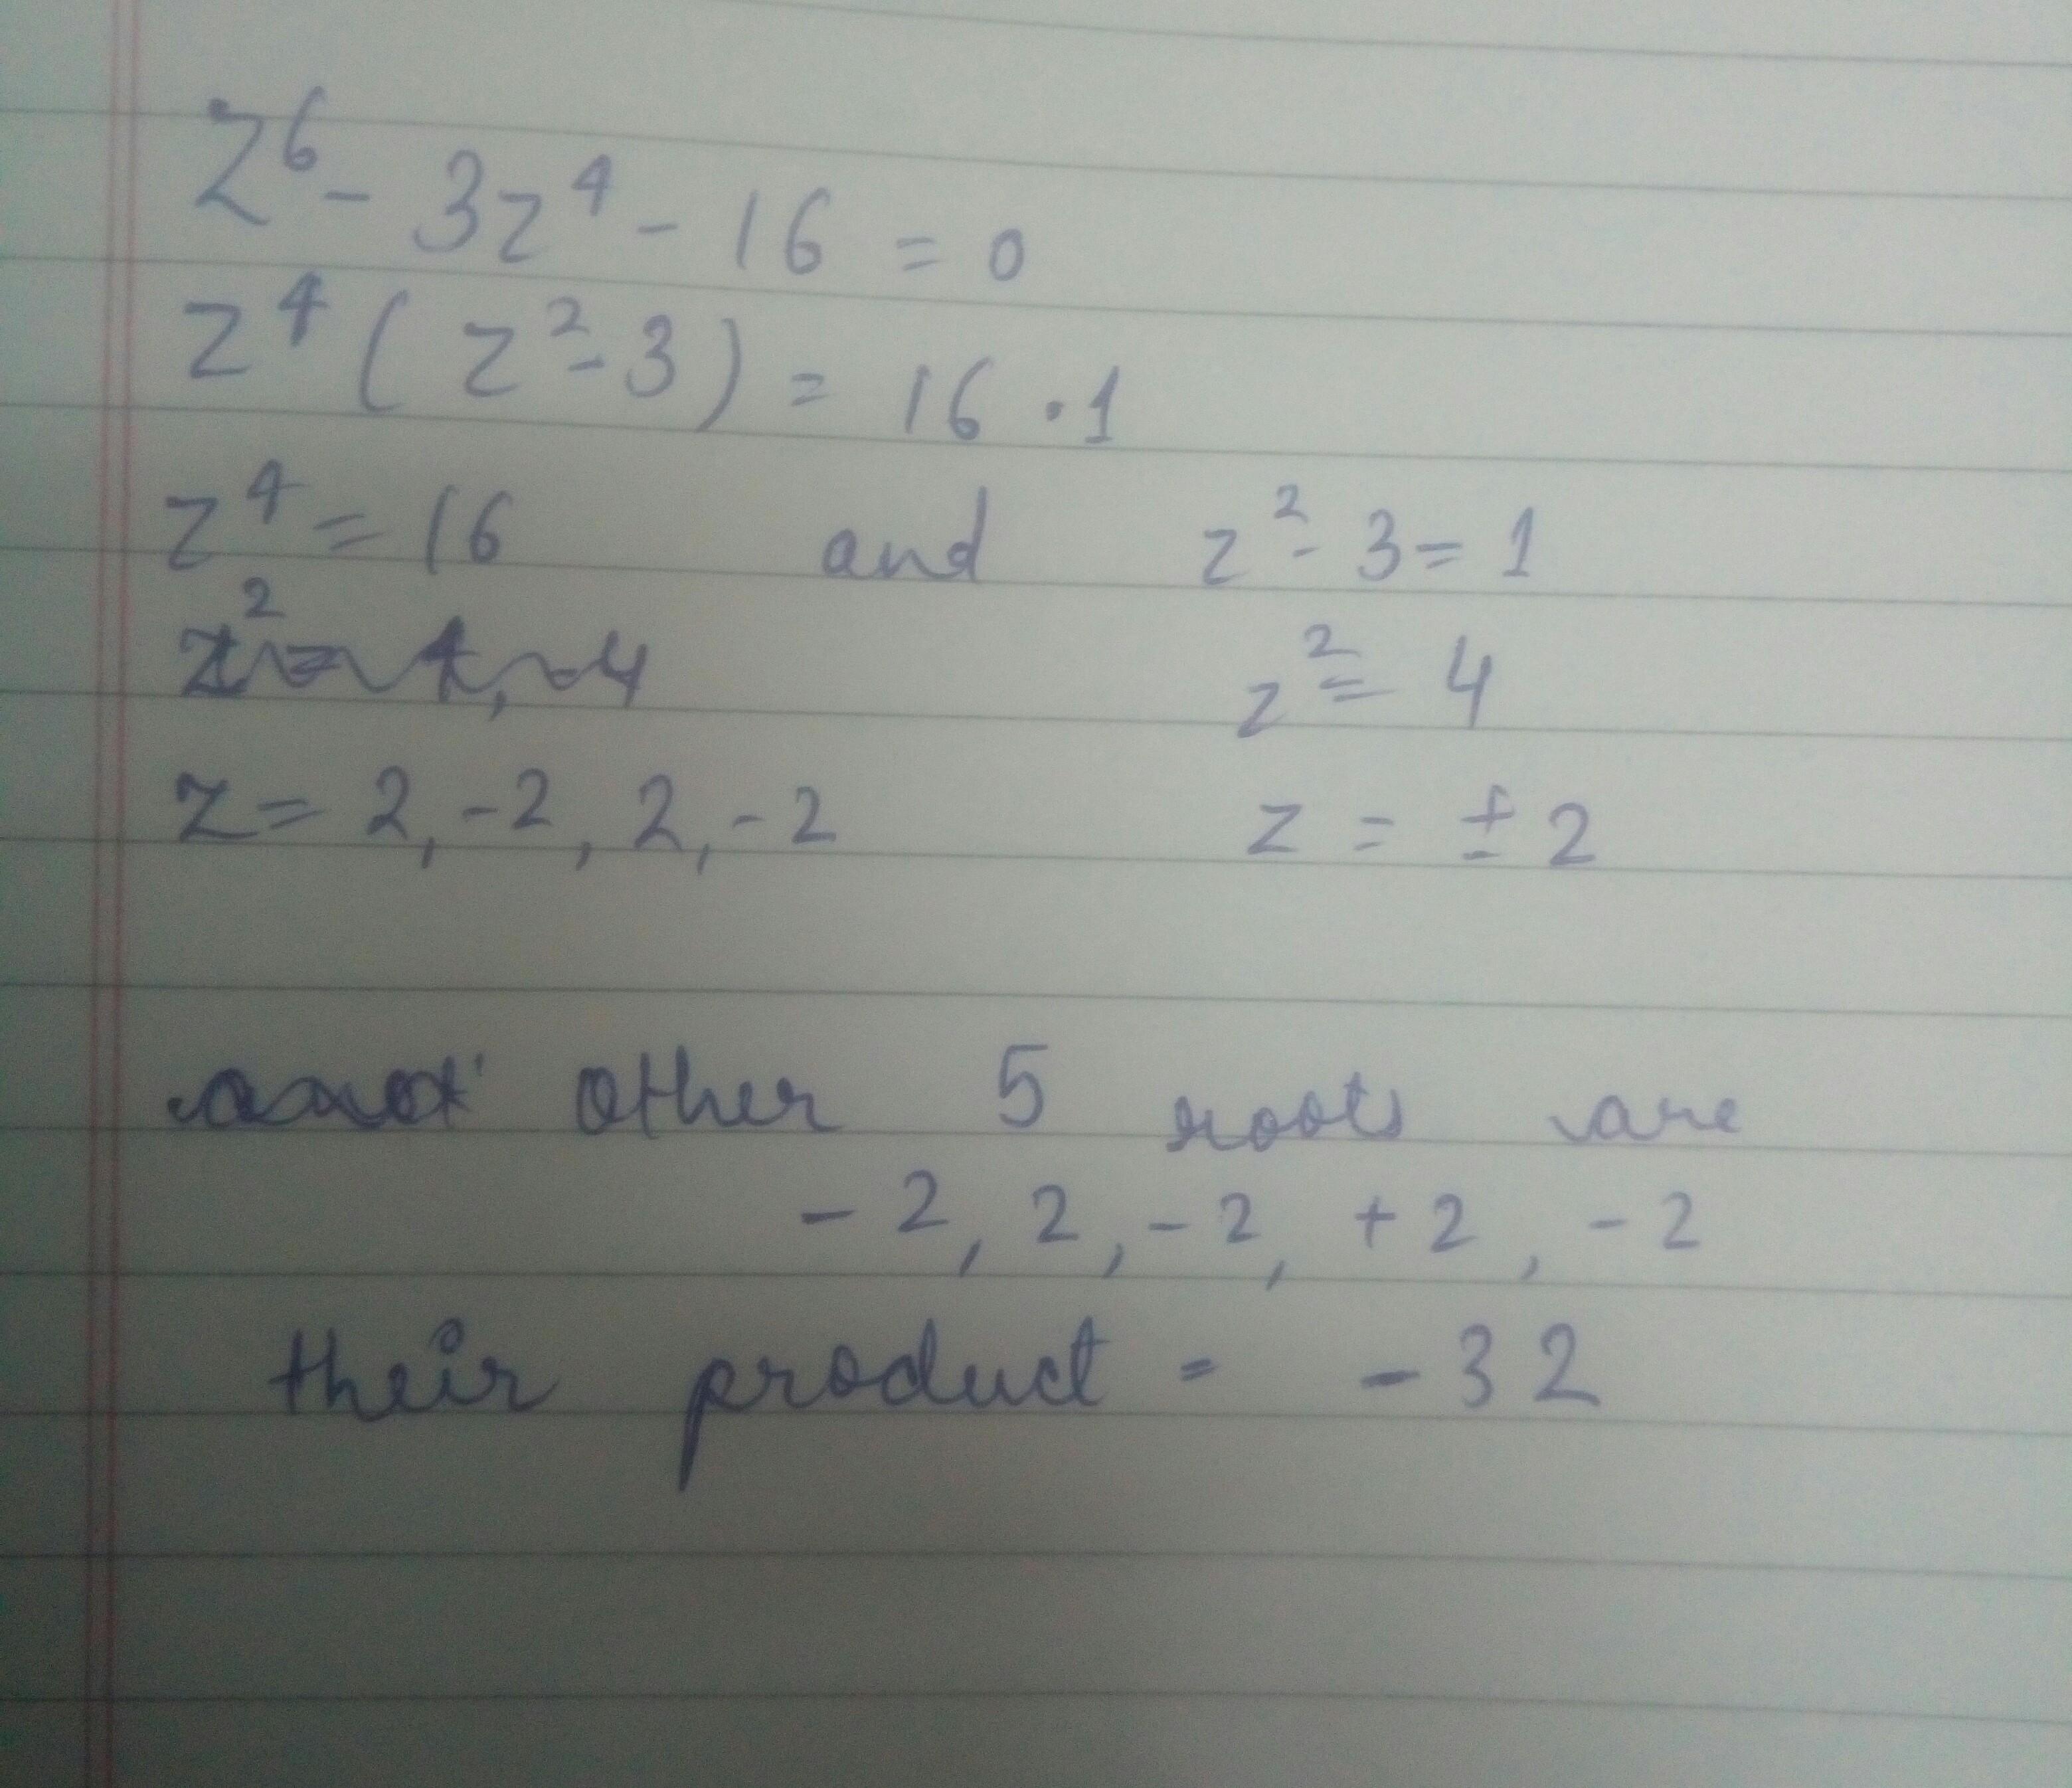 z⁶ - 3z⁴ - 16 = 0
z⁴ ( z² - 3 ) = 16 · 1
z⁴ = 16 and z² - 3 = 1
z² = 4
z = 2, -2, 2, -2 z = ± 2
other 5 roots are
- 2, 2, - 2, + 2, - 2
their product = - 32